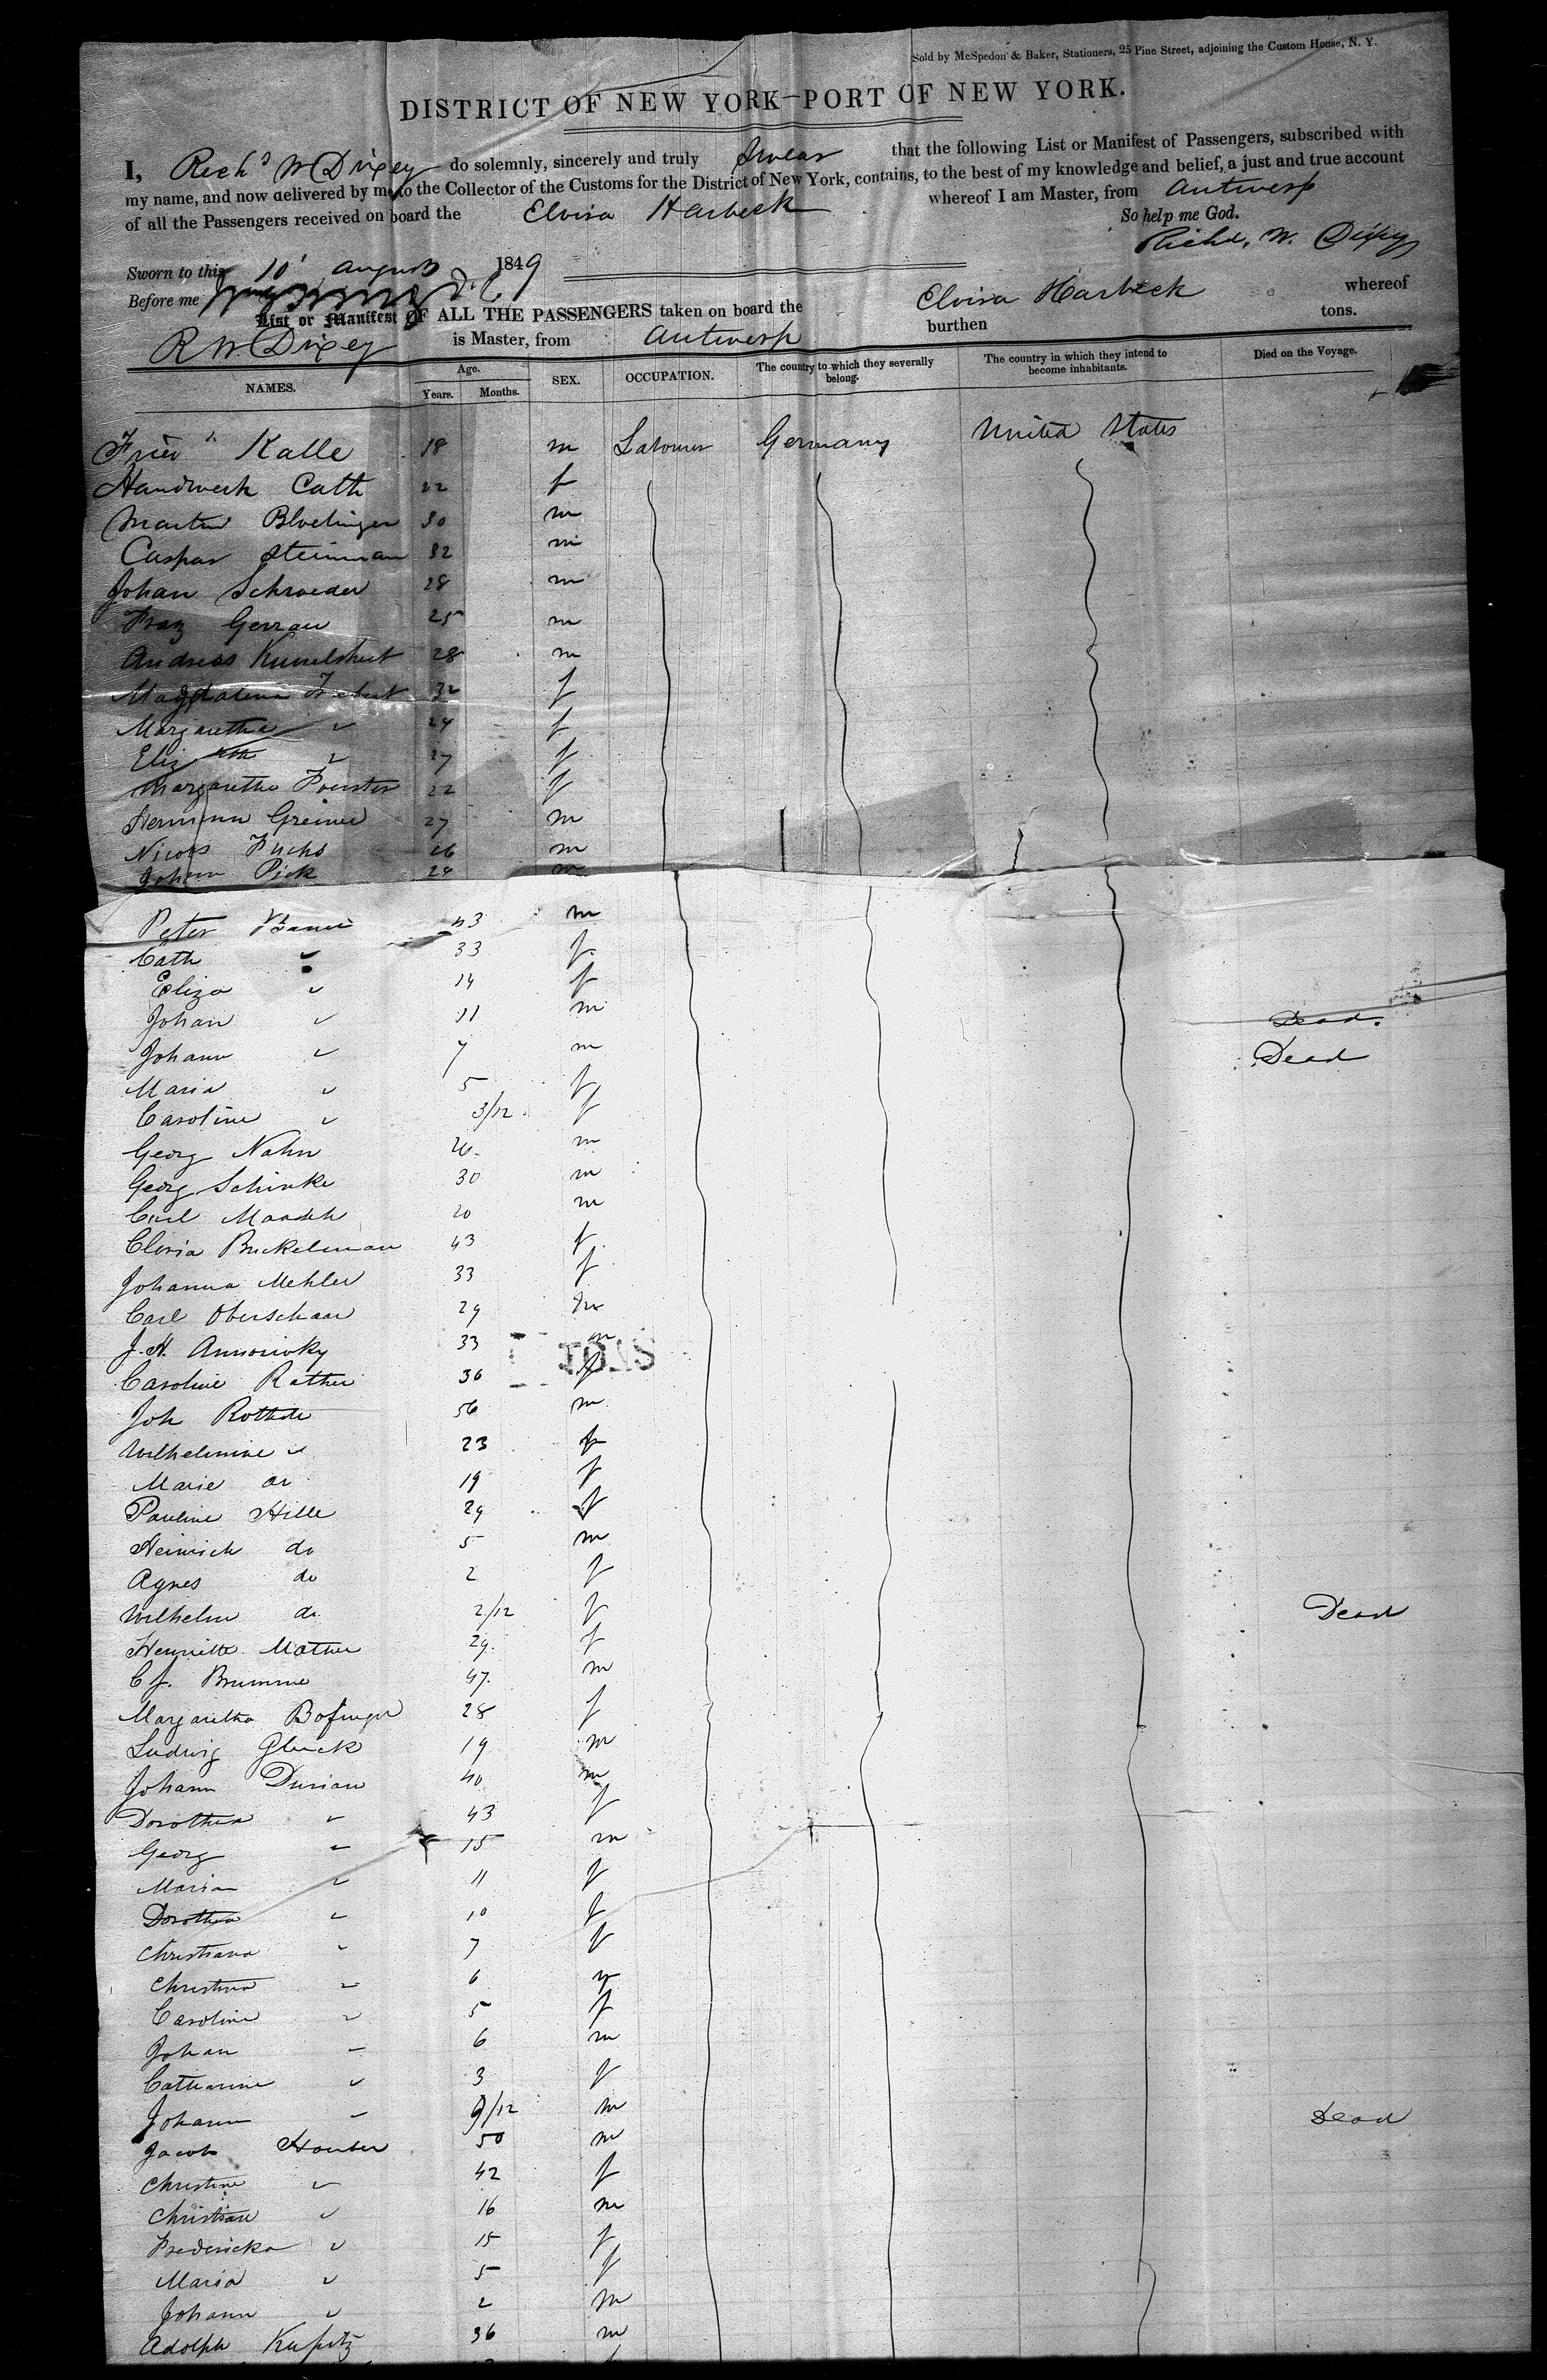 Sold by McSpedon & Baker, Stationers, 25 Pine Street, adjoining the Custom House, N. Y.
DISTRICT OF NEW YORK—PORT OF NEW YORK.
I, Richd W Dixey do solemnly, sincerely and truly swear that the following List or Manifest of Passengers, subscribed with
my name, and now delivered by me to the Collector of the Customs for the District of New York, contains, to the best of my knowledge and belief, a just and true account
of all the Passengers received on board the Elvira Harbeck whereof I am Master, from Antwerp
So help me God.
Richd. W. Dixey
Sworn to this 10 August 1849
Before me
List or Manifest OF ALL THE PASSENGERS taken on board the Elvira Harbeck whereof
R W Dixey is Master, from Antwerp burthen tons.
NAMES. Age. Years. Months. SEX. OCCUPATION. The country to which they severally belong. The country in which they intend to become inhabitants. Died on the Voyage.
Kalle 18 m Labourer Germany United States
Handwerk Cath 22 f
Martin 30 m
Caspar Steinman 32 m
Johan Schroeder 28 m
Franz 25 m
Andreas 28 m
Magdalena 32 f
Margaretha " 24 f
Elizath " 27 f
Margaretha Foerster 22 f
Hermann Greiner 27 m
Fuchs 26 m
Johann Pick 24 m
Peter 43 m
Cath " 33 f
Eliza " 14 f
Johan " 11 m Dead.
Johann " 7 m Dead
Maria " 5 f
Caroline " 3/12 f
Georg Nahn m
Georg Schinke 30 m
Carl 20 m
Bruckelman 43 f
Johanna Mehler 33 f
Carl Oberschaar 29 m
J. H. 33 m
Caroline Rather 36 f
Joh 56 m
Wilhelmine " 23 f
Marie do 19 f
Pauline Hille 29 f
Heinrich do 5 m
Agnes do 2 f
Wilhelm do 2/12 f Dead
Henriette Mather 29. f
C f. Brumme 47. m
Margaretha Bofinger 28 f
Ludwig Gluck 19 m
Johann Durian 40 m
Dorothea " 43 f
Georg " 15 m
Maria " 11 f
Dorothea " 10 f
Christiana " 7 f
Christina " 6 f
Caroline " 5 f
Johan " 6 m
Catharine " 3 f
Johann " 9/12 m Dead
Jacob 50 m
Christine " 42 f
Christian " 16 m
Fredericka " 15 f
Maria " 5 f
Johann " 2 m
Adolph Kupitz 36 m